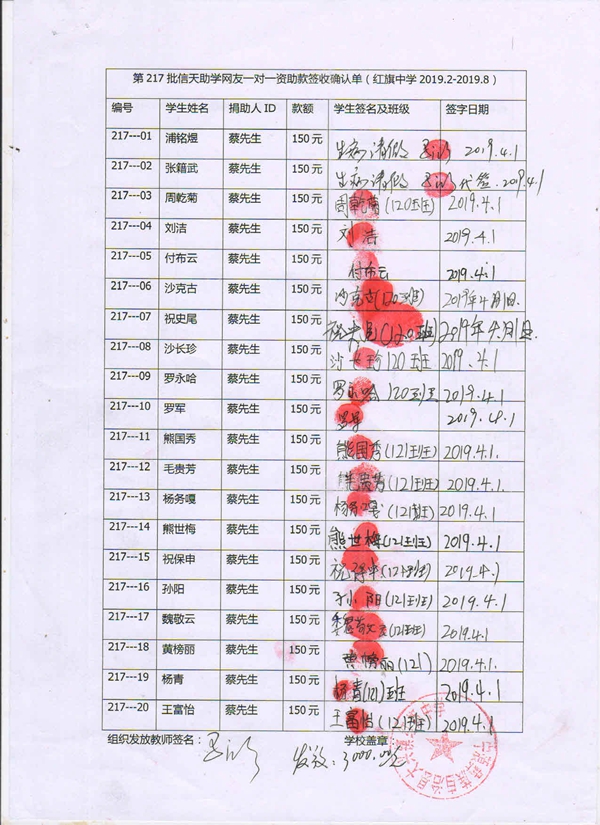 第 217 批信天助学网友一对一资助款签收确认单（红旗中学 2019.2-2019.8）
编号 学生姓名 捐助人 ID 款额 学生签名及班级 签字日期
217---01 浦铭煜 蔡先生 150 元 生病请假 2019.4.1
217---02 张籍武 蔡先生 150 元 生病请假 代签. 2019.4.1
217---03 周乾菊 蔡先生 150 元 周乾菊(120班) 2019.4.1
217---04 刘洁 蔡先生 150 元 刘洁 2019.4.1
217---05 付布云 蔡先生 150 元 付布云 2019.4.1
217---06 沙克古 蔡先生 150 元 沙克古(120班) 2019年4月1日.
217---07 祝史尾 蔡先生 150 元 祝史尾(120班) 2019年4月1日.
217---08 沙长珍 蔡先生 150 元 沙长珍120班 2019.4.1
217---09 罗永哈 蔡先生 150 元 罗永哈 120班 2019.4.1
217---10 罗军 蔡先生 150 元 罗军 2019.4.1
217---11 熊国秀 蔡先生 150 元 熊国秀(121班) 2019.4.1.
217---12 毛贵芳 蔡先生 150 元 毛贵芳(121班) 2019.4.1
217---13 杨务嘎 蔡先生 150 元 杨务嘎(121班) 2019.4.1
217---14 熊世梅 蔡先生 150 元 熊世梅(121班) 2019.4.1
217---15 祝保申 蔡先生 150 元 祝保申(121班) 2019.4.1
217---16 孙阳 蔡先生 150 元 孙阳(121班) 2019.4.1
217---17 魏敬云 蔡先生 150 元 魏敬云(121班) 2019.4.1
217---18 黄榜丽 蔡先生 150 元 黄榜丽(121) 2019.4.1
217---19 杨青 蔡先生 150 元 杨青(121)班 2019.4.1
217---20 王富怡 蔡先生 150 元 王富怡(121班) 2019.4.1
组织发放教师签名： 学校盖章
发放:3000.00元